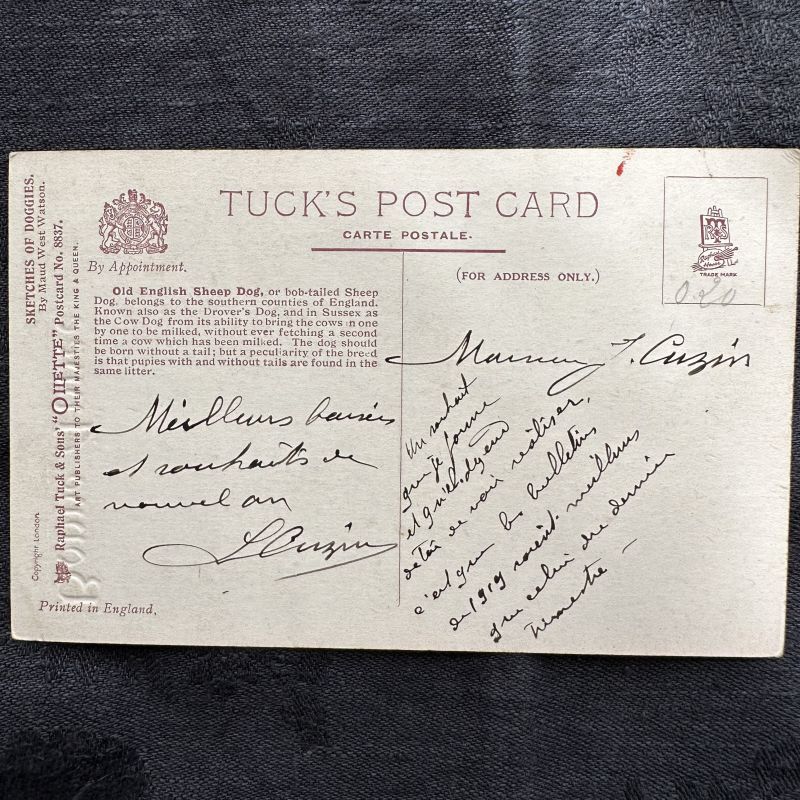 SKETCHES OF DOGGIES.
By Maud West Watson.
Raphael Tuck & Sons' "OILETTE" Postcard No. 8837.
ART PUBLISHERS TO THEIR MAJESTIES THE KING & QUEEN.
Copyright London.
TUCK'S POST CARD
CARTE POSTALE.
By Appointment.
(FOR ADDRESS ONLY.)
TRADE MARK
0.20
Old English Sheep Dog, or bob-tailed Sheep
Dog, belongs to the southern counties of England.
Known also as the Drover's Dog, and in Sussex as
the Cow Dog from its ability to bring the cows in one
by one to be milked, without ever fetching a second
time a cow which has been milked. The dog should
be born without a tail; but a peculiarity of the breed
is that pupies with and without tails are found in the
same litter.
Meilleurs baisers
et souhaits de
nouvel an
L Cuzin
J. Cuzin
Un souhait
que je forme
et qu'il dépend
de toi de voir réaliser,
c'est que les bulletins
de 1919 soient meilleurs
que celui du dernier
trimestre -
Printed in England.